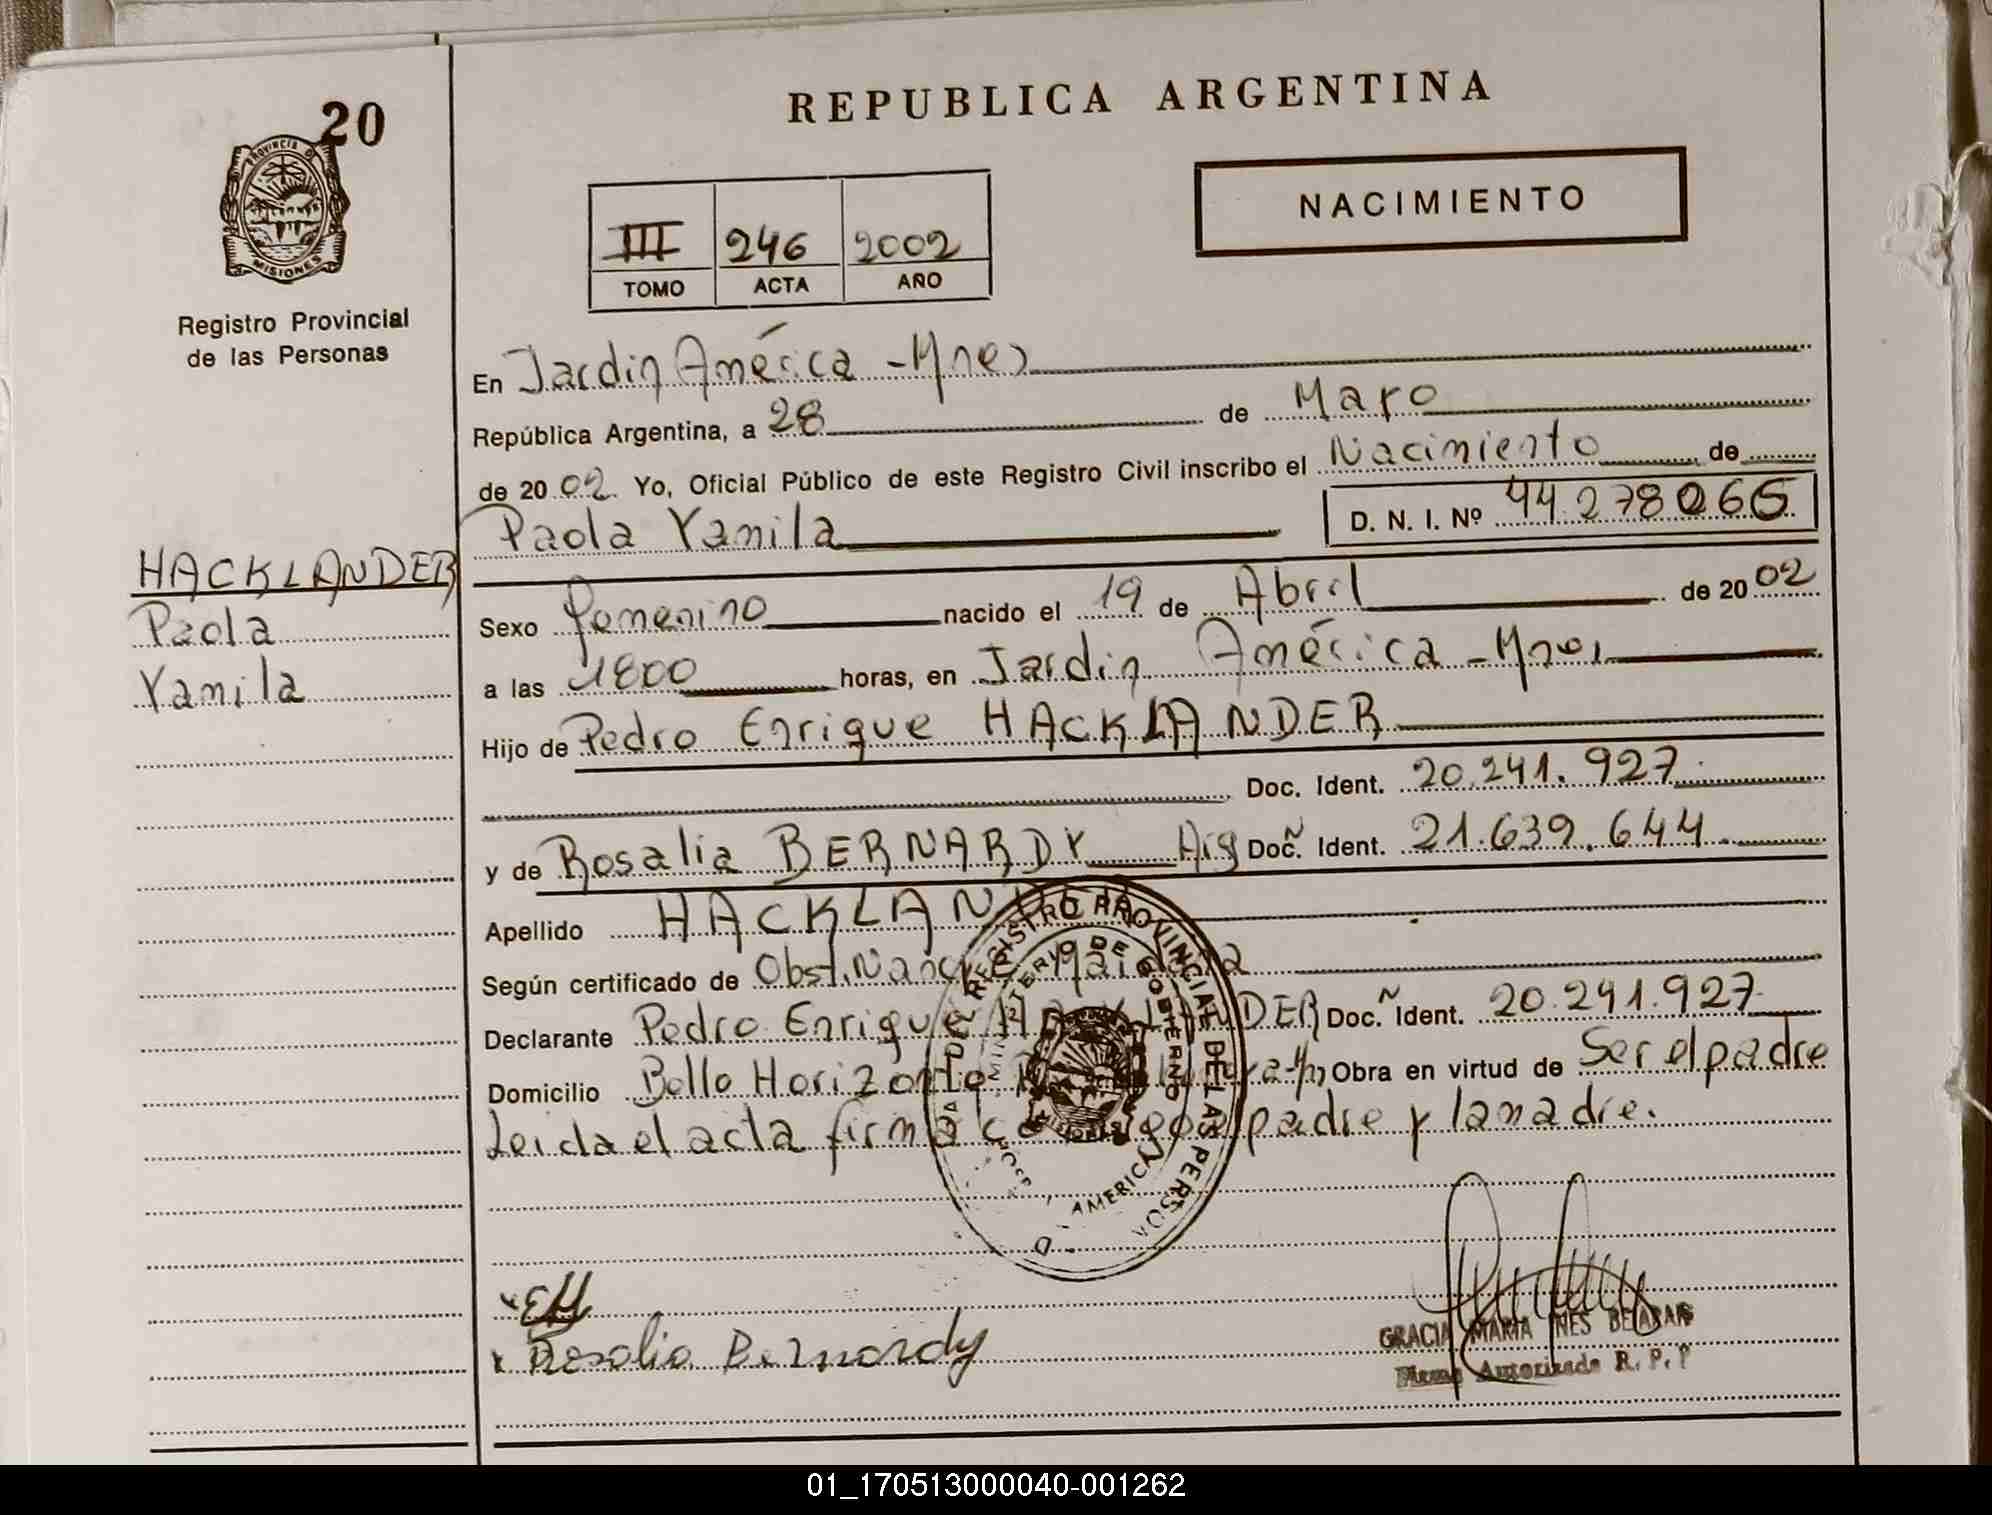 20
PROVINCIA D
MISIONES
Registro Provincial
de las Personas
HACKLANDER
Paola
Yamila
REPUBLICA ARGENTINA
NACIMIENTO
III 246 2002
TOMO ACTA AÑO
En Jardin América - Mnes
República Argentina, a 28 de Mayo
de 2002. Yo, Oficial Público de este Registro Civil inscribo el Nacimiento de
Paola Yamila D. N. I. Nº 44.278065
Sexo femenino nacido el 19 de Abril de 2002
a las 1800 horas, en Jardin América - Mnes
Hijo de Pedro Enrique HACKLANDER
Doc. Ident. 20.241.927
y de Rosalia BERNARDY Arg Doc. Ident. 21.639.644
Apellido HACKLAN
Según certificado de Obst. Nanc
Declarante Pedro Enrique DER Doc. Ident. 20.241.927
Domicilio Bello Horizonte Obra en virtud de Ser el padre
Leida el acta firma padre y la madre.
REGISTRO PROVINCIAL DE LAS PERSONAS
MINISTERIO DE GOBIERNO
AMERICA
x EH
x Rosalia Bernardy
GRACIA MARIA INES
Firma Autorizada R. P. P
01_170513000040-001262